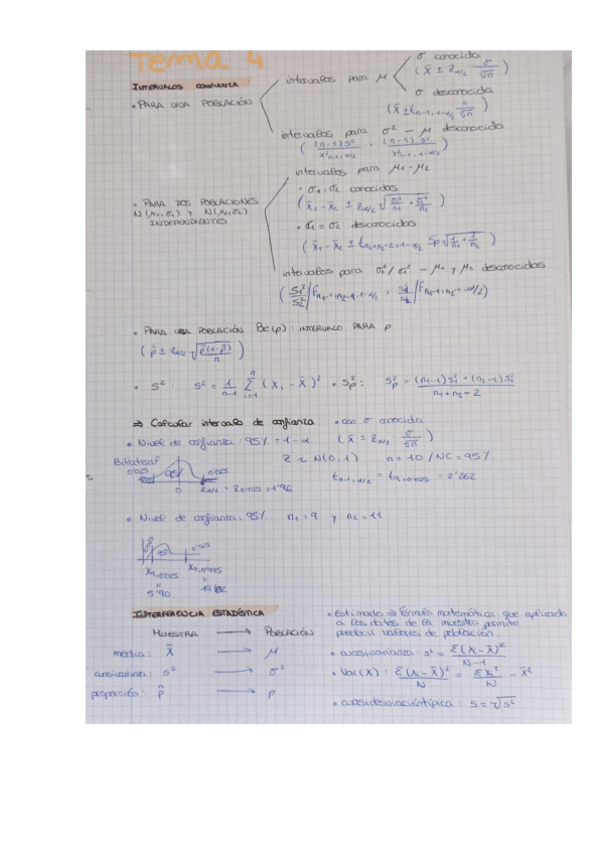 Tema 4
INTERVALOS CONFIANZA
• PARA UNA POBLACIÓN
intervalos para μ
σ conocida
( x̄ ± z α/2 σ/√n )
σ desconocida
( x̄ ± t n-1, 1-α/2 s/√n )
intervalos para σ² - μ desconocida
( (n-1)s² / x² n-1, α/2 , (n-1)s² / x² n-1, 1-α/2 )
intervalos para μ1 - μ2
• PARA DOS POBLACIONES
N(μ1, σ1) y N(μ2, σ2)
INDEPENDIENTES
• σ1, σ2 conocidas
( x̄1 - x̄2 ± z α/2 √ σ1²/n1 + σ2²/n2 )
• σ1 = σ2 desconocidas
( x̄1 - x̄2 ± t n1+n2-2, 1-α/2 Sp √ 1/n1 + 1/n2 )
intervalos para σ1²/σ2² - μ1 y μ2 desconocidas
• PARA UNA POBLACIÓN Be(p): INTERVALO PARA p
( p̂ ± z α/2 √ p̂(1-p̂)/n )
• S²: S² = 1/n-1 Σ (xi - x̄)² • Sp²: Sp² = (n1-1)s1² + (n2-1)s2² / n1+n2-2
⇒ Calcular intervalo de confianza
• con σ conocida
• Nivel de confianza: 95% = 1-α
( x̄ ± z α/2 · σ/√n )
Z ~ N(0,1) n = 10 / NC = 95%
0'025 95% 0'025
0 z α/2 = z 0'025 = 1'96
t n-1, α/2 = t 9, 0'025 = 2'262
• Nivel de confianza: 95% n1 = 9 y n2 = 11
95% 0'025
x 9, 0'025 x 9, 0'975
"
INTERFERENCIA ESTADÍSTICA
MUESTRA → POBLACIÓN
media: x̄ → μ
cuasivarianza: s² → σ²
proporción: p̂ → p
• Estimado ⇒ fórmula matemática que aplicada
a los datos de la muestra permite
predecir valores de población.
• cuasivarianza: s² = Σ(xi - x̄)² / N-1
• Var(x): Σ(xi - x̄)² / N = Σxi² / N - x̄²
• cuasidesviación típica: s = √s²